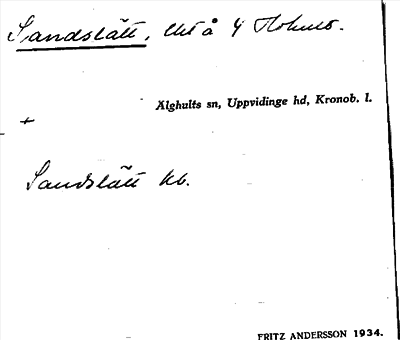 Sandslätt, lht å 4 Hohult.
Älghults sn, Uppvidinge hd, Kronob. l.
+
Sandslätt kb.
FRITZ ANDERSSON 1934.